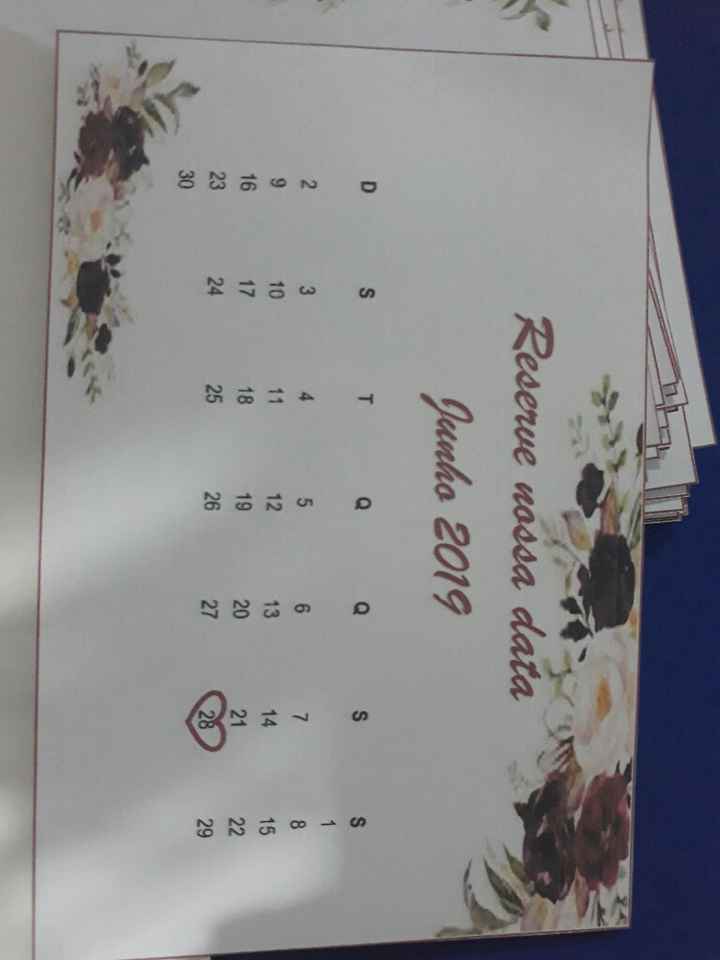 Reserve nossa data
Junho 2019
D S T Q Q S S
1
2 3 4 5 6 7 8
9 10 11 12 13 14 15
16 17 18 19 20 21 22
23 24 25 26 27 28 29
30